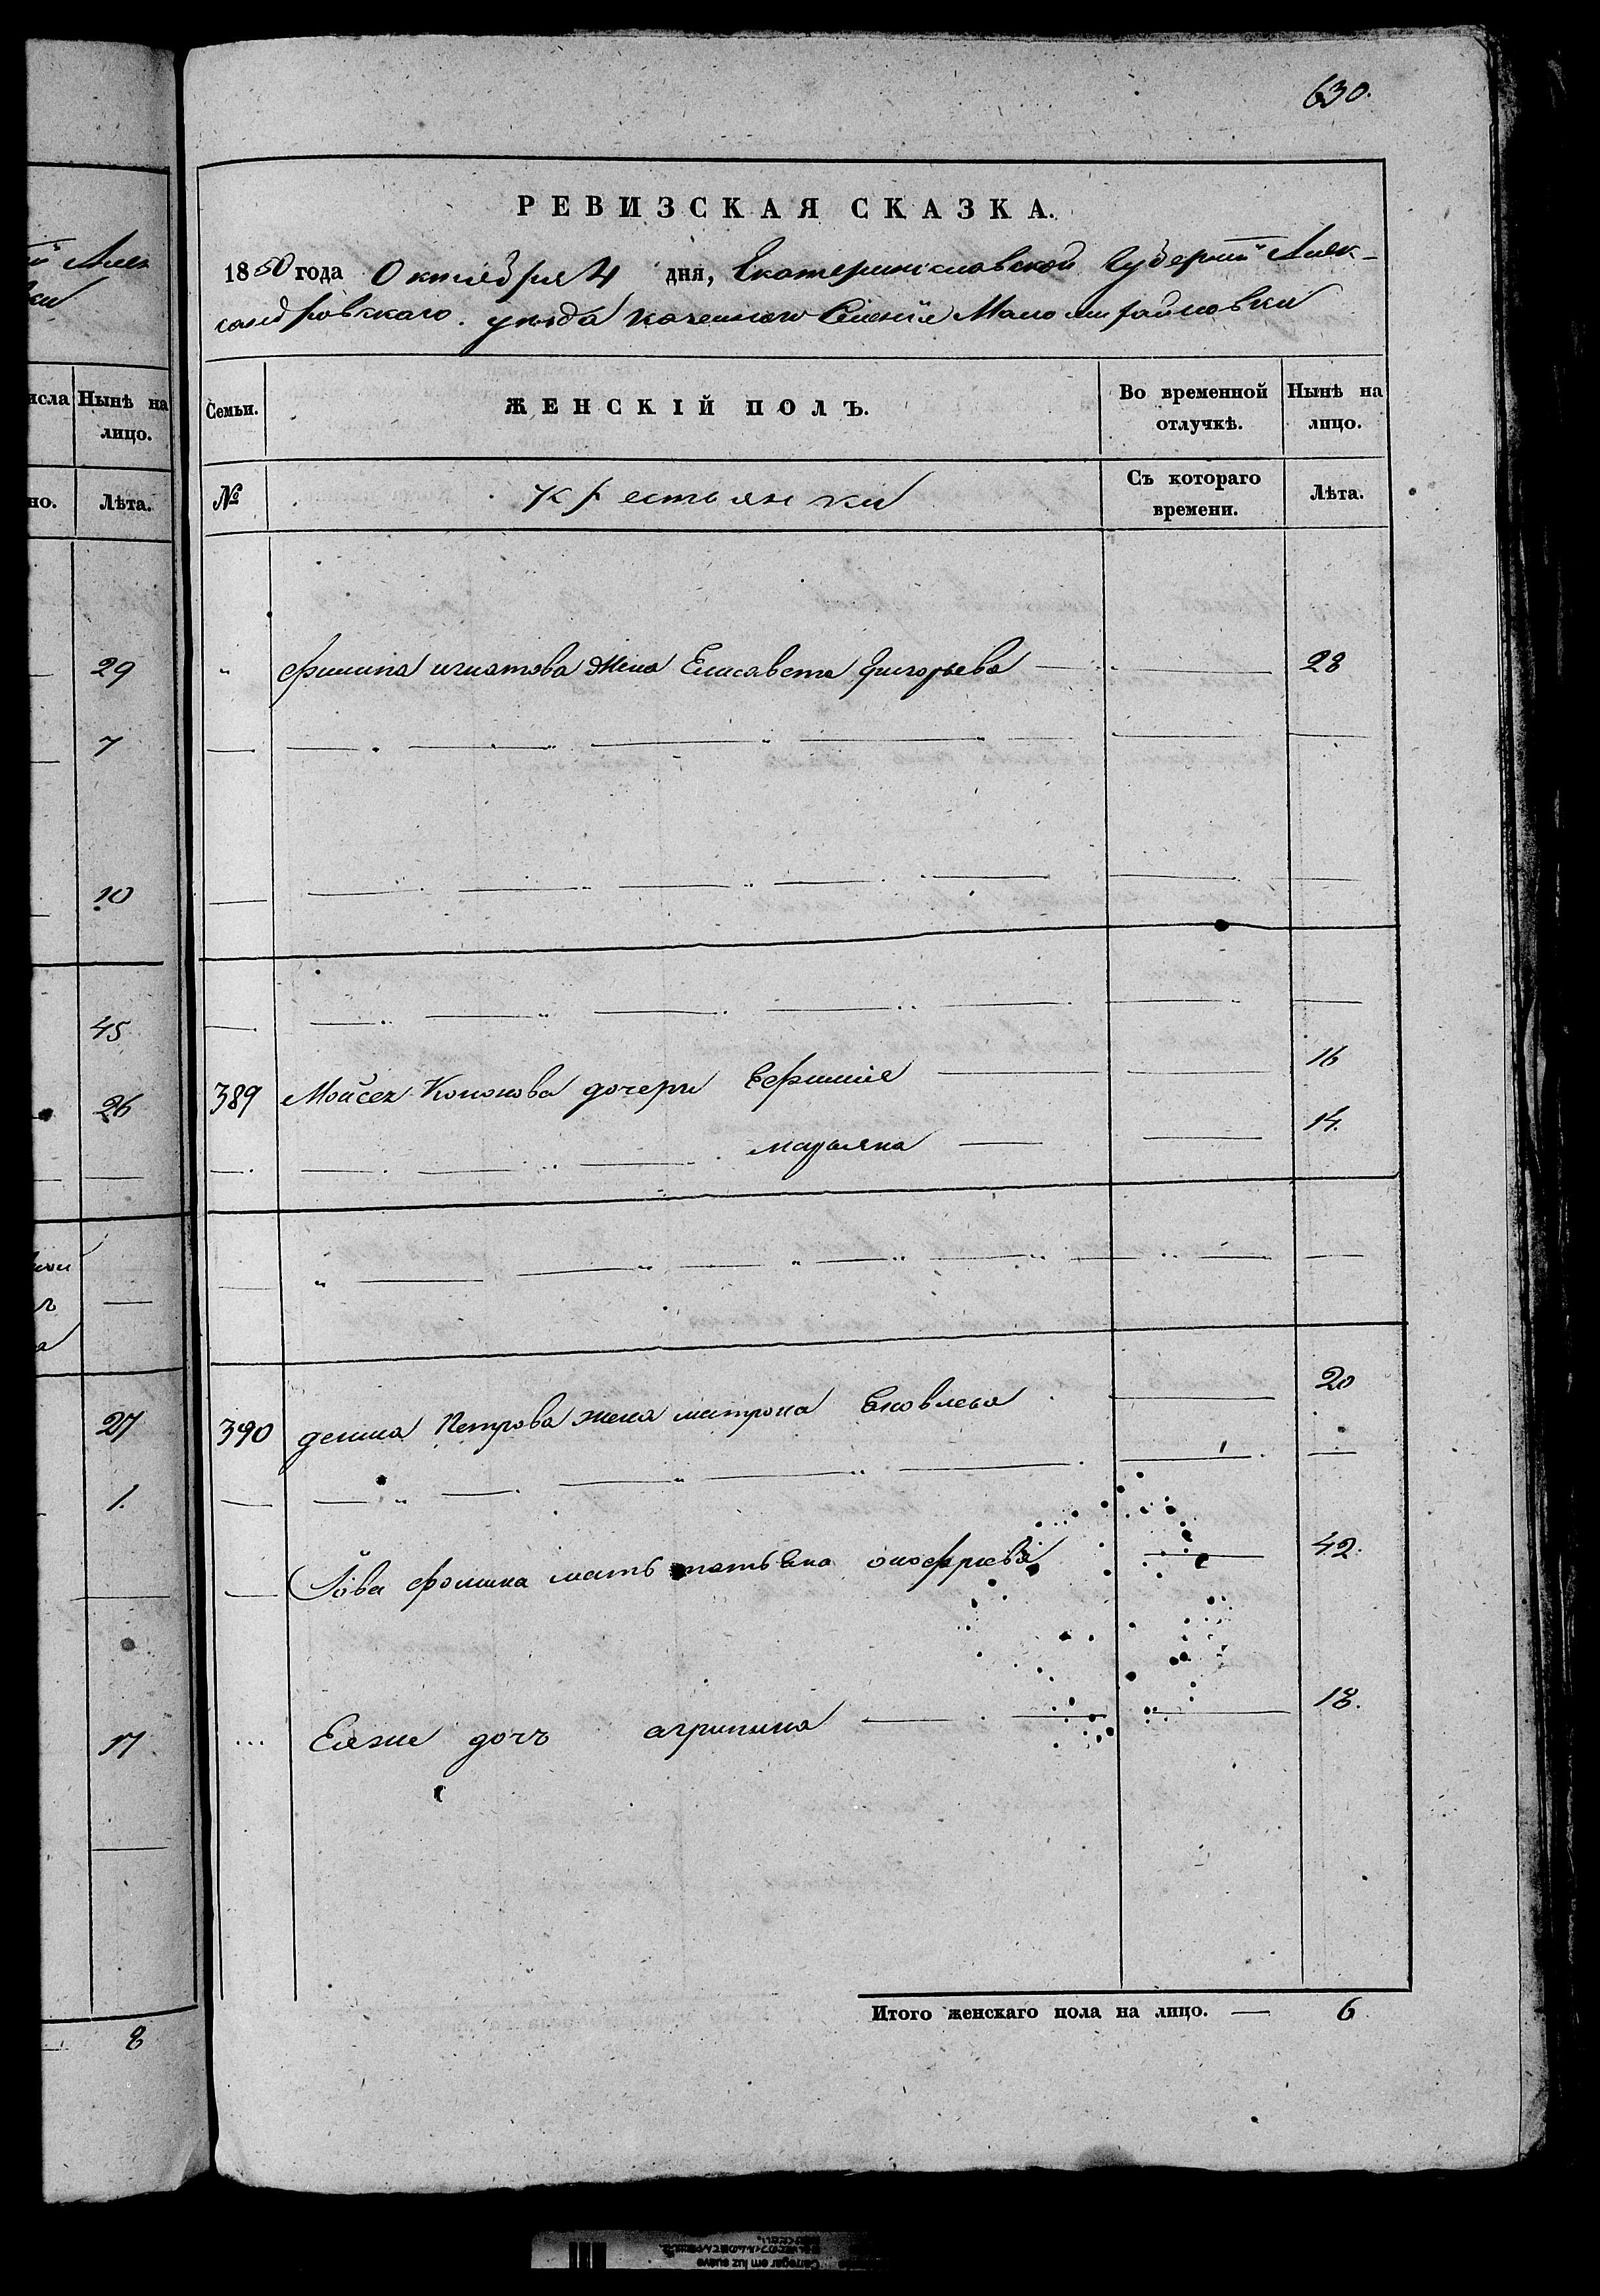 630.
РЕВИЗСКАЯ СКАЗКА.
1850 года Октября 4 дня, Екатеринославской Губерніи Алек-
сандровскаго уезда казеннаго Селенія Маломихайловки
Семьи. ЖЕНСКІЙ ПОЛЪ. Во временной отлучкѣ. Нынѣ на лицо.
№ Крестьянки Съ котораго времени. Лѣта.
Филипа игнатова жена Елисавета Григорьева 28
389 Мойсея Кононова дочери Ефимия 16
марьяна 14.
390 демида Петрова жена матрона Яковлева 20
Іова фомина мать татьяна онофриева 42.
Еяже дочъ агрипина 18.
Итого женскаго пола на лицо. — 6
Нынѣ на
лицо.
Лѣта.
29
7
10
45
26
27
1.
17
8